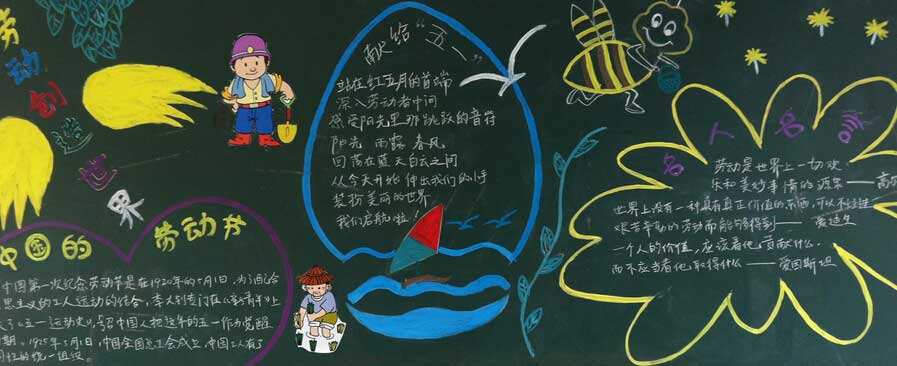 劳动创造世界
中国的
劳动节
中国第一次纪念劳动节是在1920年的5月1日,为了配合
思主义的工人运动的结合,李大钊专门在《新青年》上
了《五一运动史》,号召中国人把这年的五一作为觉醒
期。1925年5月1日,中国全国总工会成立,中国工人有了
的统一组织。
献给“五一”
站在红五月的首端
深入劳动者中间
感受阳光里那跳跃的音符
阳光 雨露 春风
回荡在蓝天白云之间
从今天开始 伸出我们的小手
装扮美丽的世界
我们启航啦!
名人名言
劳动是世界上一切欢
乐和美妙事情的源泉——高
世界上没有一种具有真正价值的东西,可以不经过
艰苦辛勤的劳动而能够得到——爱迪生
一个人的价值,应该看他贡献什么,
而不应当看他取得什么——爱因斯坦